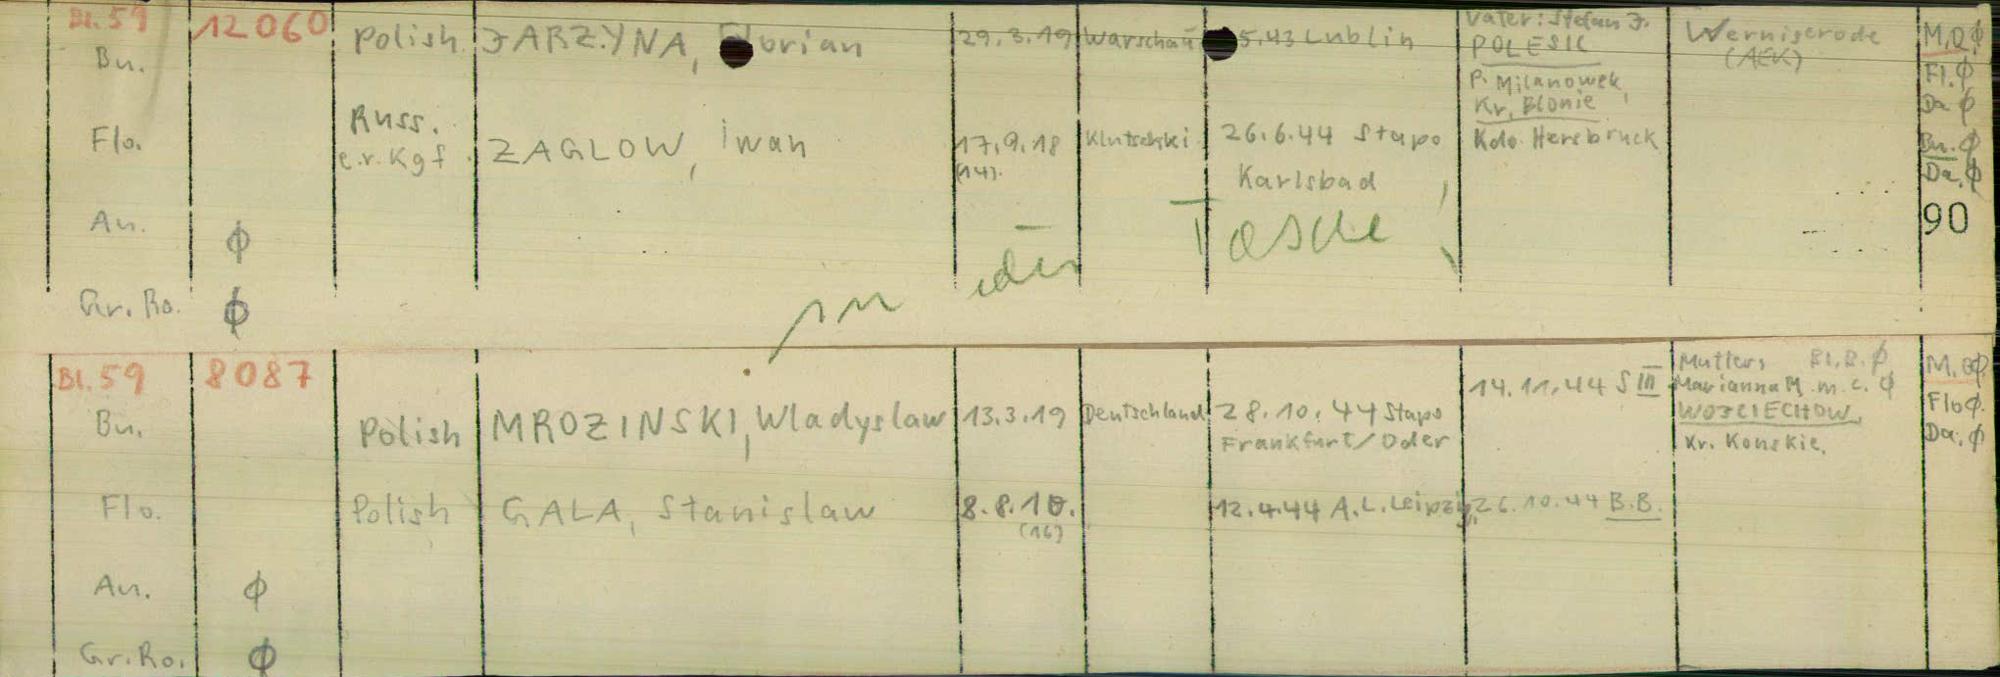 Bl. 59 12060 Polish JARZYNA, Florian 29.3.19 Warschau 5.43 Lublin Vater: Stefan J. Wernigerode M.O.ϕ
Bu. POLESIE (AEK) Fl. ϕ
P. Milanowek, Da ϕ
Kr. Blonie
Flo. Russ. ZAGLOW, Iwan 17.9.18 Klutschki 26.6.44 Stapo Kdo. Hersbruck Bu. ϕ
e.r. Kgf. (14). Karlsbad Da. ϕ
An. ϕ 90
in der Tasche
Gr. Ro. ϕ
Bl. 59 8087 14.11.44 S III Mutters Bl.B. ϕ M. Oϕ
Marianna M. m. c. ϕ
Bu. Polish MROZINSKI, Wladyslaw 13.3.19 Deutschland 28.10.44 Stapo WOJCIECHOW, Flo ϕ.
Frankfurt/Oder Kr. Konskie. Da. ϕ
Flo. Polish GALA, Stanislaw 8.8.10. 12.4.44 A.L. Leipzig, 26.10.44 B.B.
(16)
An. ϕ
Gr. Ro. ϕ